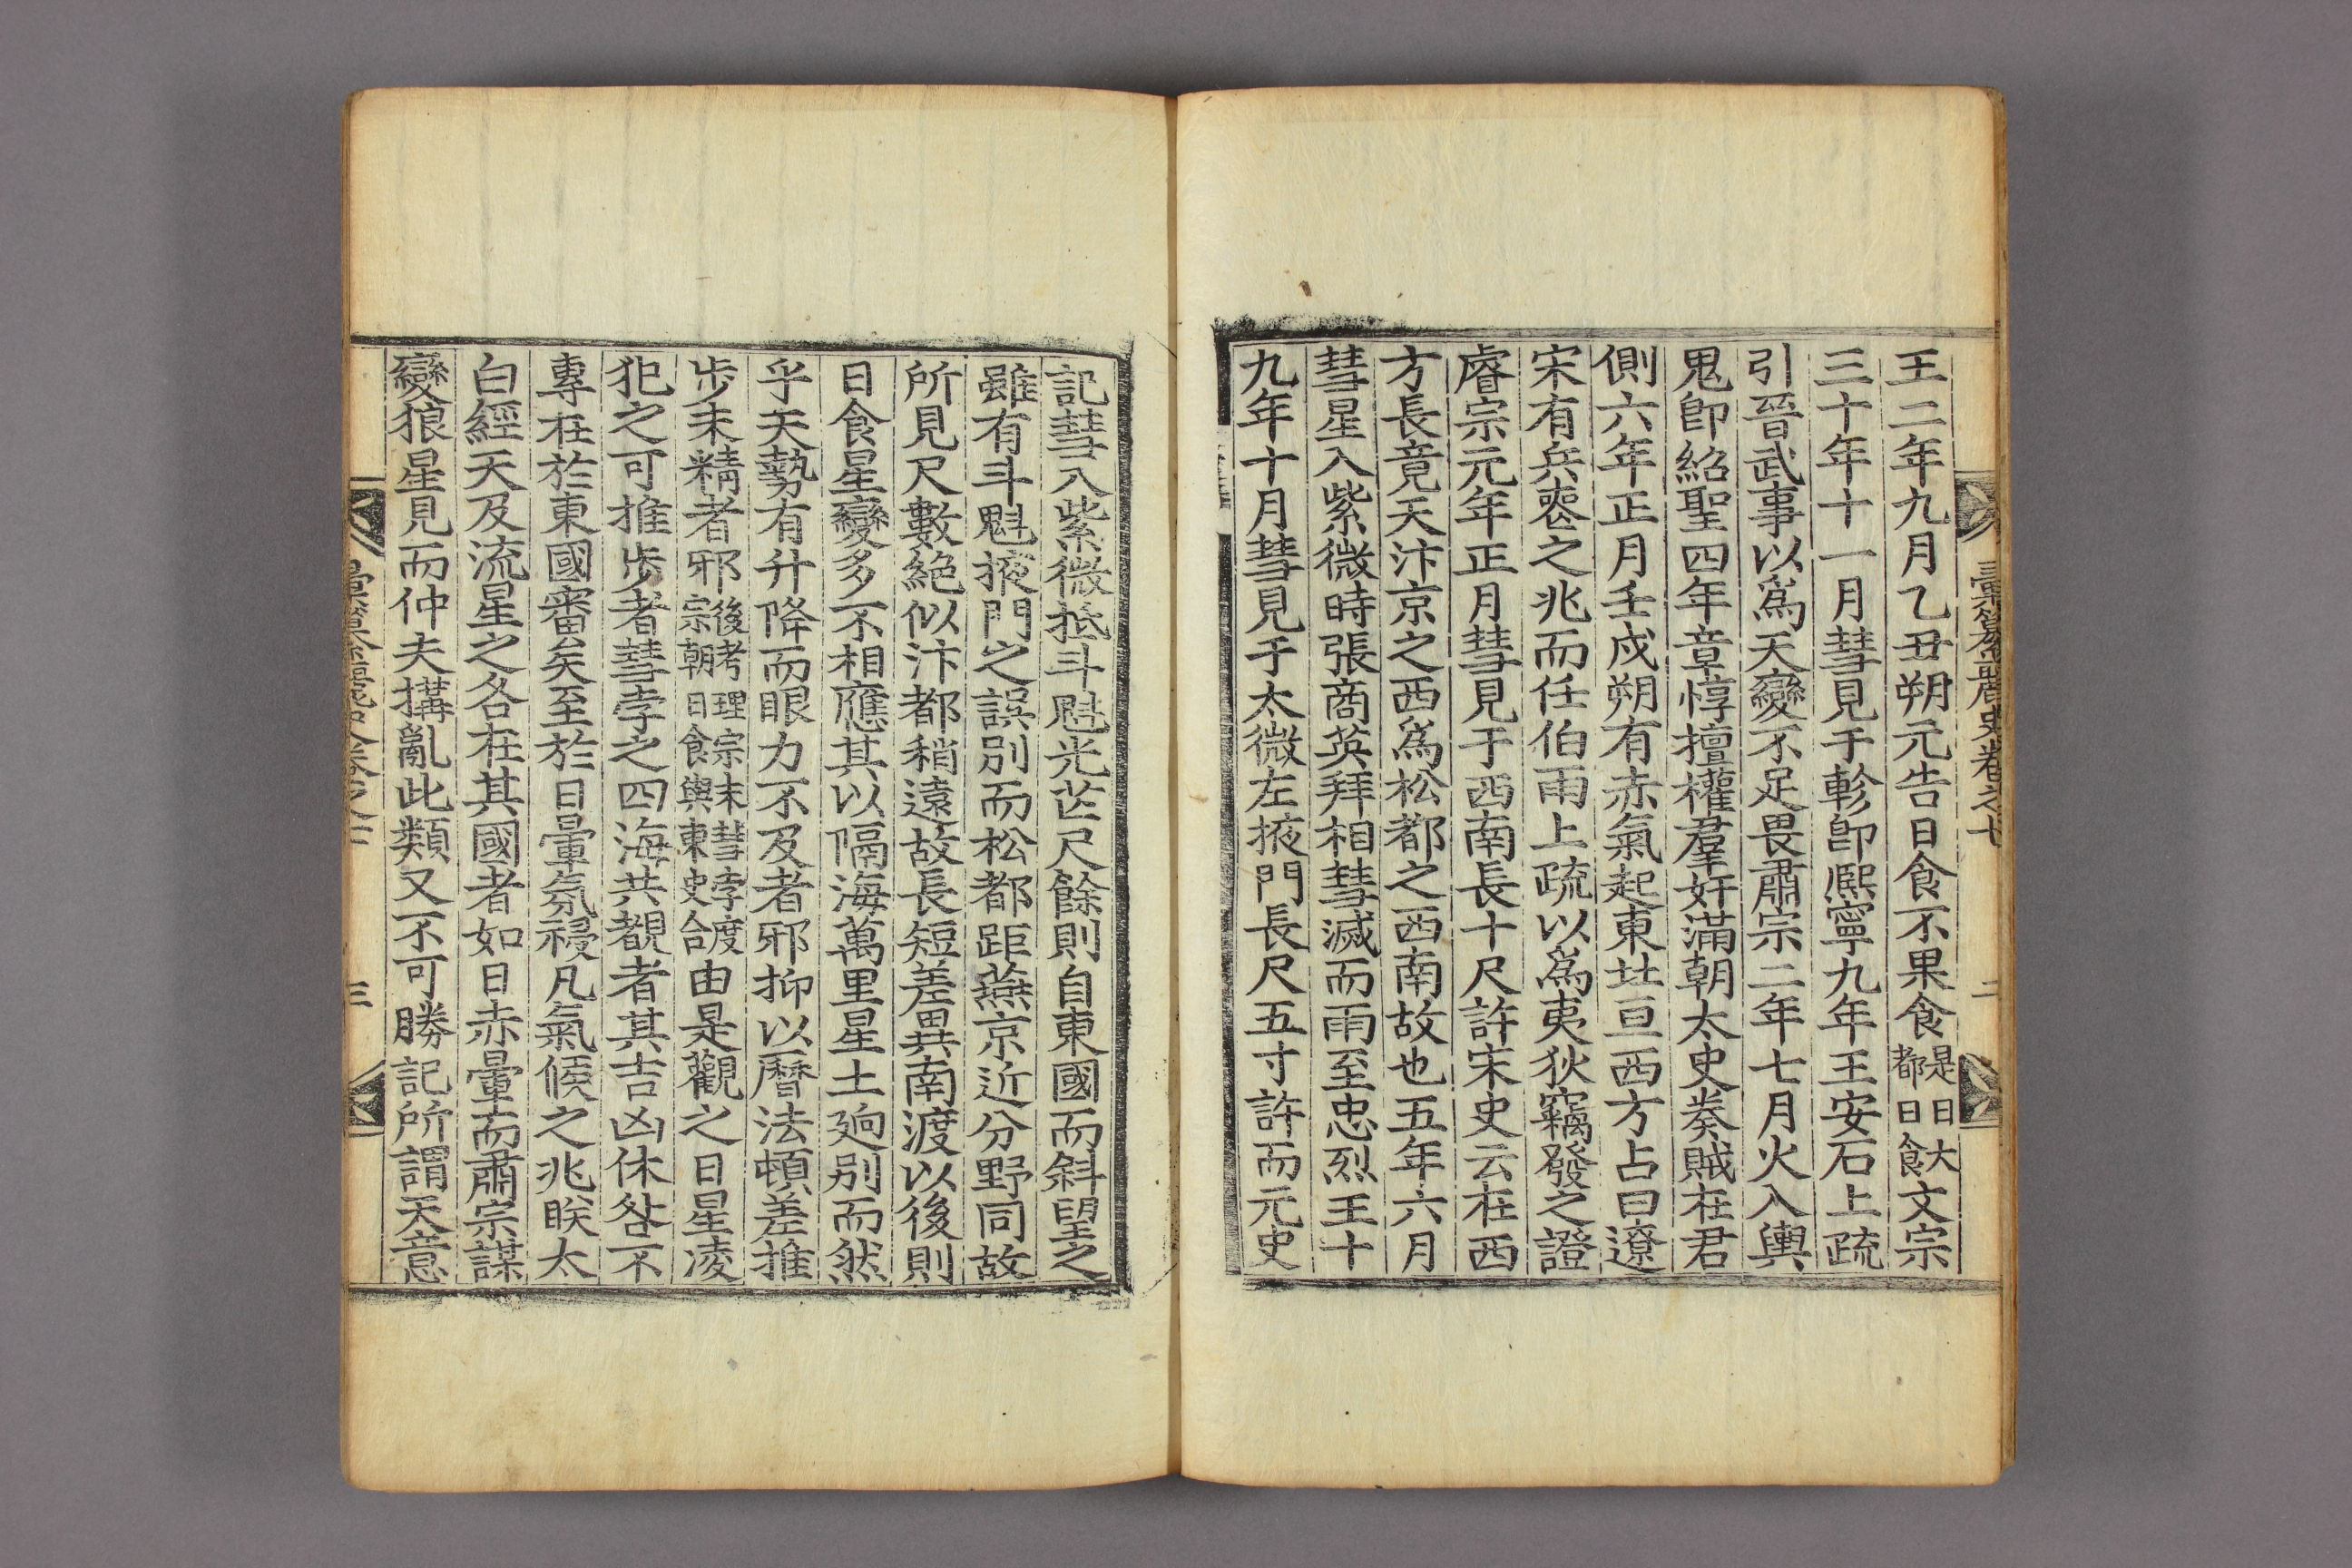 彙纂麗史卷之七
二
王二年九月乙丑朔元告日食不果食是日大都日食文宗
三十年十一月彗見于軫卽熙寧九年王安石上疏
引晉武事以爲天變不足畏肅宗二年七月火入輿
鬼卽紹聖四年章惇擅權羣奸滿朝太史奏賊在君
側六年正月壬戌朔有赤氣起東北亘西方占曰遼
宋有兵喪之兆而任伯雨上疏以爲夷狄竊發之證
睿宗元年正月彗見于西南長十尺許宋史云在西
方長竟天汴京之西爲松都之西南故也五年六月
彗星入紫微時張商英拜相彗滅而雨至忠烈王十
九年十月彗見于太微左掖門長尺五寸許而元史
記彗入紫微抵斗魁光芒尺餘則自東國而斜望之
雖有斗魁掖門之誤別而松都距燕京近分野同故
所見尺數絶似汴都稍遠故長短差異南渡以後則
日食星變多不相應其以隔海萬里星土逈別而然
乎天勢有升降而眼力不及者邪抑以曆法頓差推
步未精者邪後考理宗末彗孛度宗朝日食與東史合由是觀之日星凌
犯之可推步者彗孛之四海共覩者其吉凶休咎不
專在於東國審矣至於日暈氛祲凡氣候之兆眹太
白經天及流星之各在其國者如日赤暈而肅宗謀
變狼星見而仲夫搆亂此類又不可勝記所謂天意
三